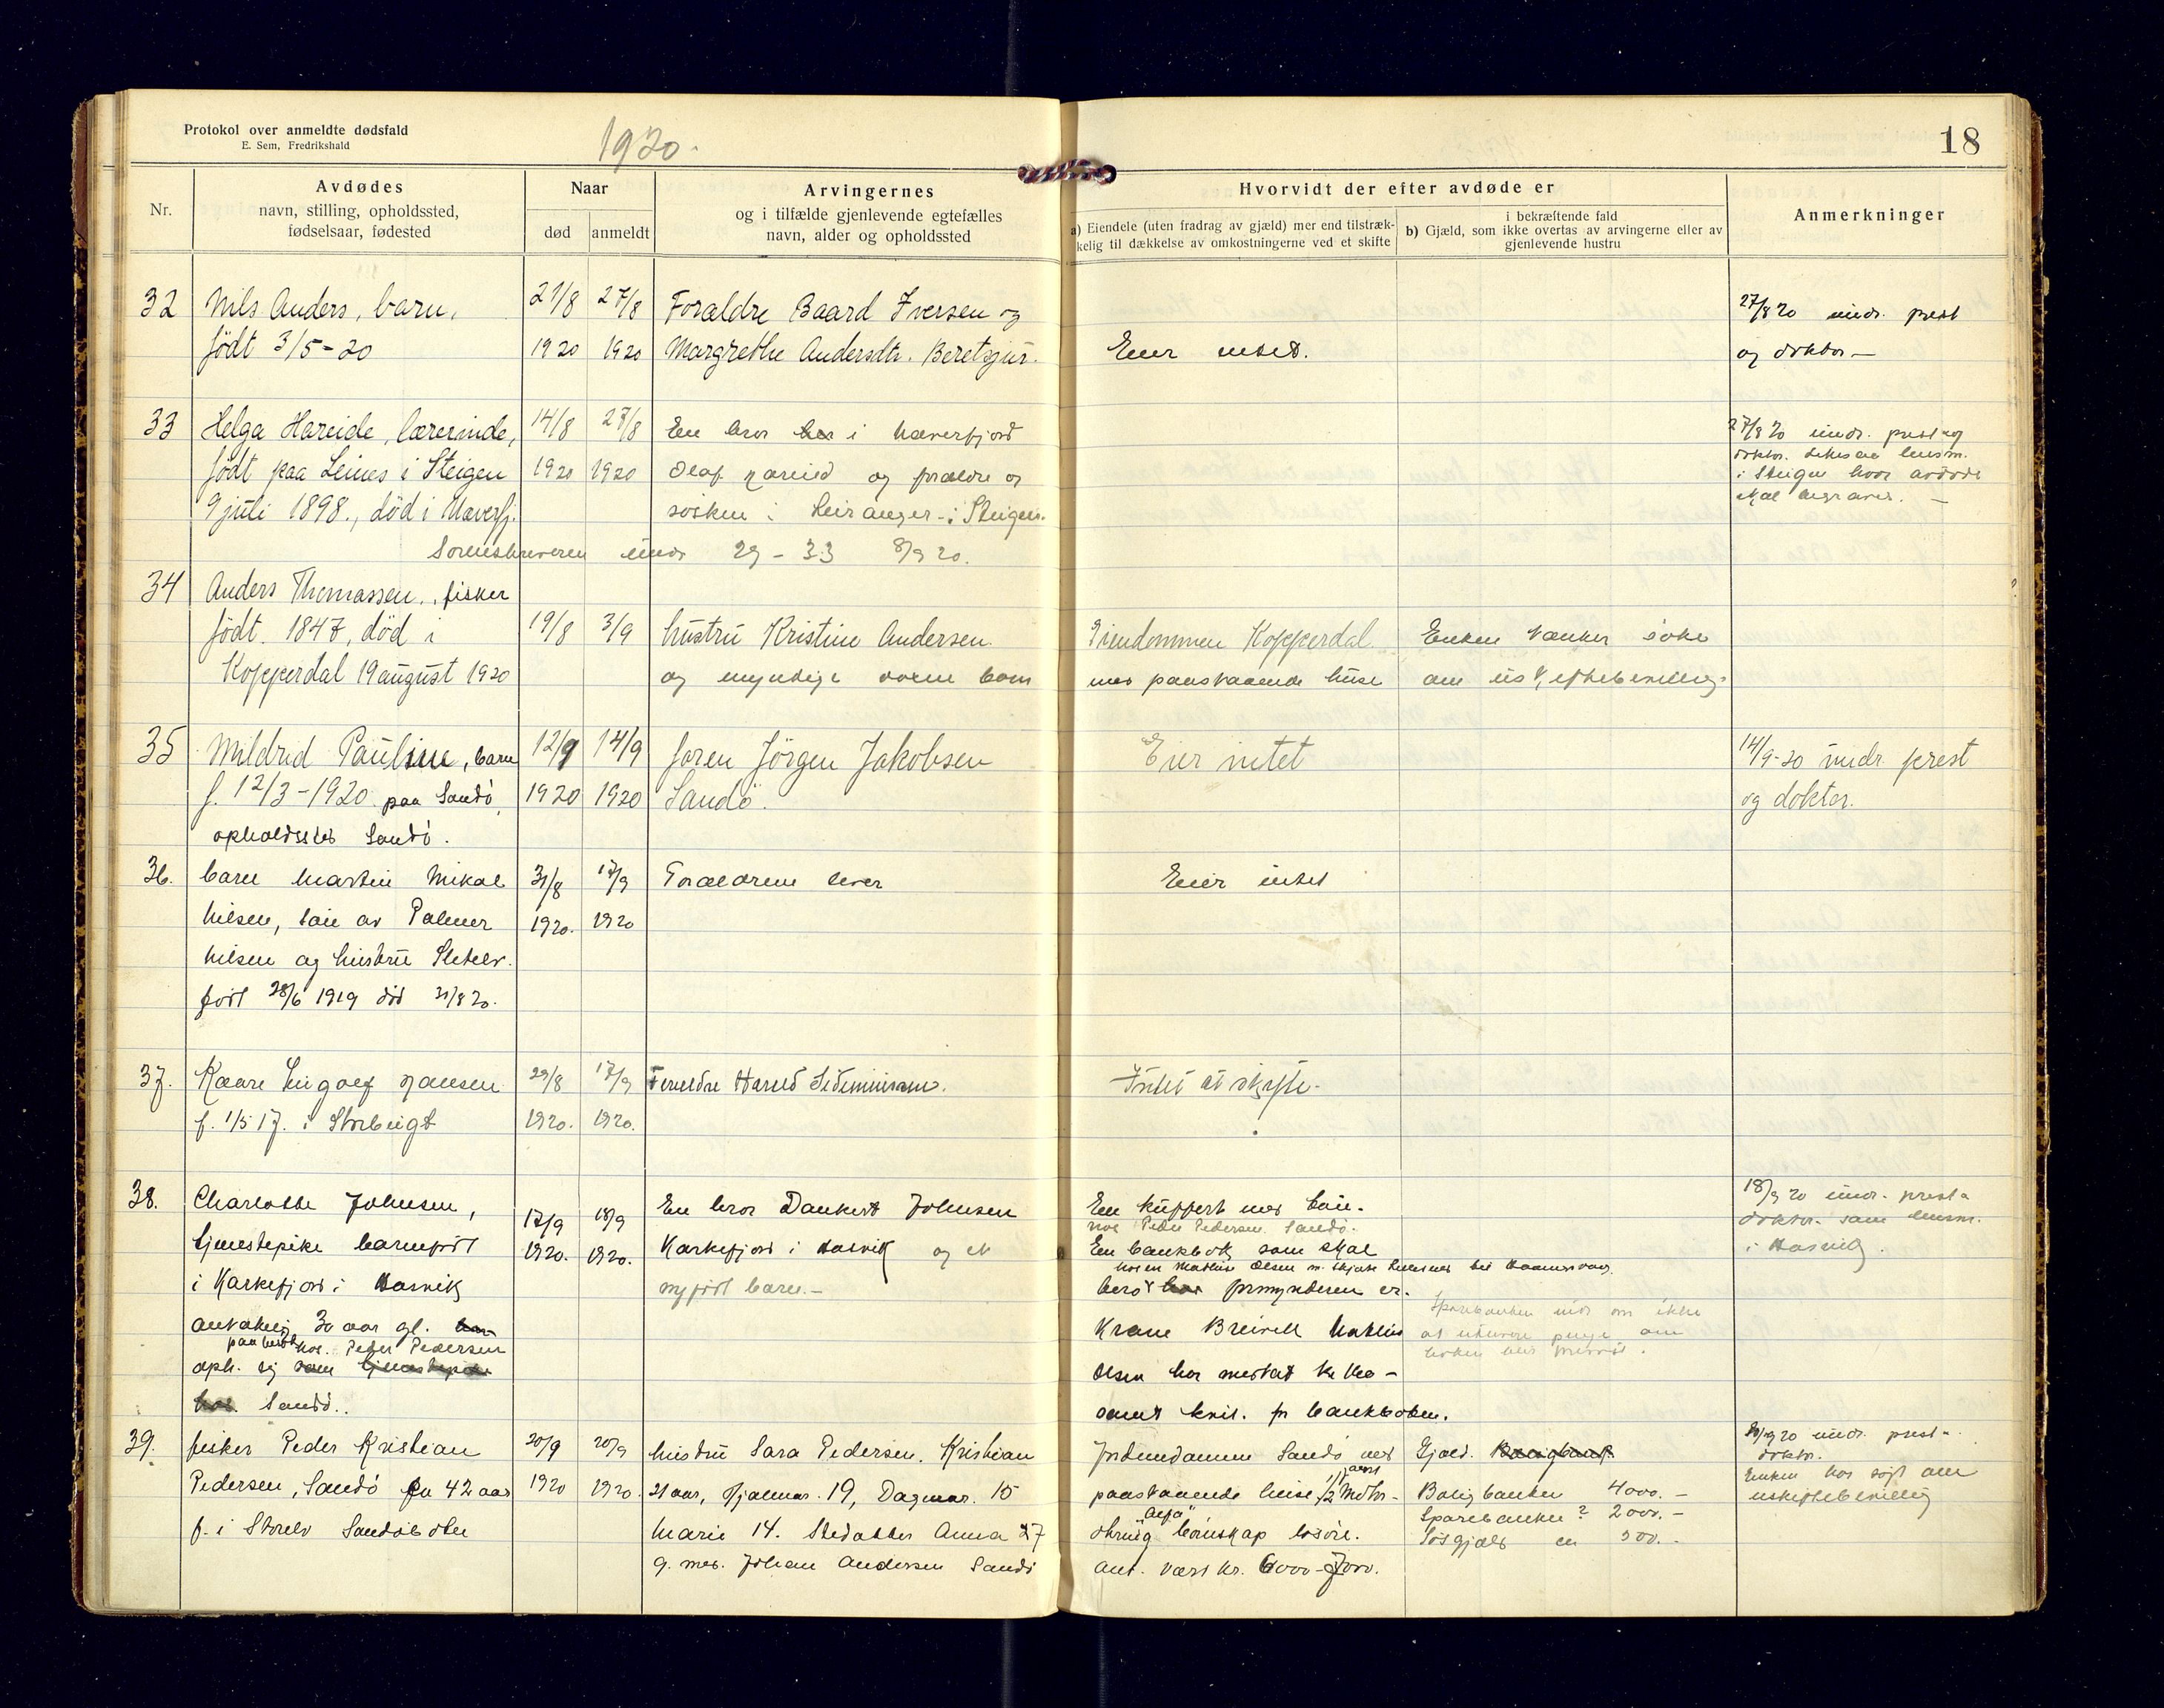 Protokol over anmeldte dødsfald
E. Sem, Fredrikshald
1920.
18
Nr.
Avdødes
navn, stilling, opholdssted,
fødselsaar, fødested
Naar
død
anmeldt
Arvingernes
og i tilfælde gjenlevende egtefælles
navn, alder og opholdssted
Hvorvidt der efter avdøde er
a) Eiendele (uten fradrag av gjæld) mer end tilstræk-
kelig til dækkelse av omkostningerne ved et skifte
i bekræftende fald
b) Gjæld, som ikke overtas av arvingerne eller av
gjenlevende hustru
Anmerkninger
32
Nils Anders, barn,
født 3/5-20
21/8
1920
27/8
1920
Forældre Baard Iversen og
Margrethe Andersdtr.
Eier intet.
27/8 20 undr. prest
og doktor –
33
Helga Hareide, lærerinde,
født paa Leines i Steigen
9 juli 1898., død i Haverfj.
14/8
1920
27/8
1920
En bror i Haverfjord
Olaf Hareid og forældre og
søsken i Leiranger i Steigen.
27/8 20 undr. prest og
doktor. lensm.
i Steigen hvor avdøde
skal begraves. –
Sorenskriveren undr 29 – 33 8/9 20.
34
Anders Thomassen, fisker
født 1847, død i
Kopperdal 19 august 1920
19/8
3/9
hustru Kristine Andersen
og myndige barn
Eiendommen Kopperdal
med paastaaende huse
Enken tænker søke
om uskiftebevilling.
35
Mildrid Pauline, barn
f. 12/3-1920 paa Sandø,
opholdssted Sandø.
12/9
1920
14/9
1920
Faren Jörgen Jakobsen
Sandø.
Eier intet
14/9-20 undr. prest
og doktor.
36.
barn Martin Mikal
Nilsen, søn av Palmer
Nilsen og hustru Sletelv.
født 28/6 1919 død 31/8 20.
31/8
1920.
17/9
1920
Forældrene lever
Eier intet
37.
Kaare Ingolf Hansen
f. 1/5 17. i Storbugt
29/8
1920.
17/9
1920.
Forældre Harald
Intet at skifte.
38.
Charlotte Johnsen,
tjenestepike barnfødt
i Karkefjord i Hasvik
antakelig 30 aar gl.
paa besøk hos. Peder Pedersen
oph. sig som tjenestepike
hos. Sandø..
17/9
1920.
18/9
1920.
En bror Dankert Johnsen
Karkefjord i Hasvik og et
nyfødt barn. –
En kuffert med tøi.
hos Peder Pedersen Sandø.
En bankbok som skal
bero formynderen er.
Krane Breivik Mathis
Olsen har mottat
samt kvit. for bankboken.
Sparebanken undr om ikke
at utlevere penge om
boken blir
18/9 20 undr. prest
doktor. samt lensm.
i Hasvik.
39.
fisker Peder Kristian
Pedersen, Sandø 42 aar
f. i Storelv Sandøbotn
20/9
1920
20/9
1920.
hustru Sara Pedersen. Kristian
21 aar, Hjalmar. 19, Dagmar. 15
Marie 14. Stedatter Anna 27
g. med. Johan Andersen Sandø
Jordeiendommen Sandø med
paastaaende huse, 1/2 Motor-
bønskap løsøre.
ant. værd kr. 6000-7000.
Gjæld.
Boligbanken 4000. –
Sparebanken? 2000. –
Løsgjæld en 500. –
20/9 20 undr. prest
doktor.
Enken har søgt om
uskiftebevilling